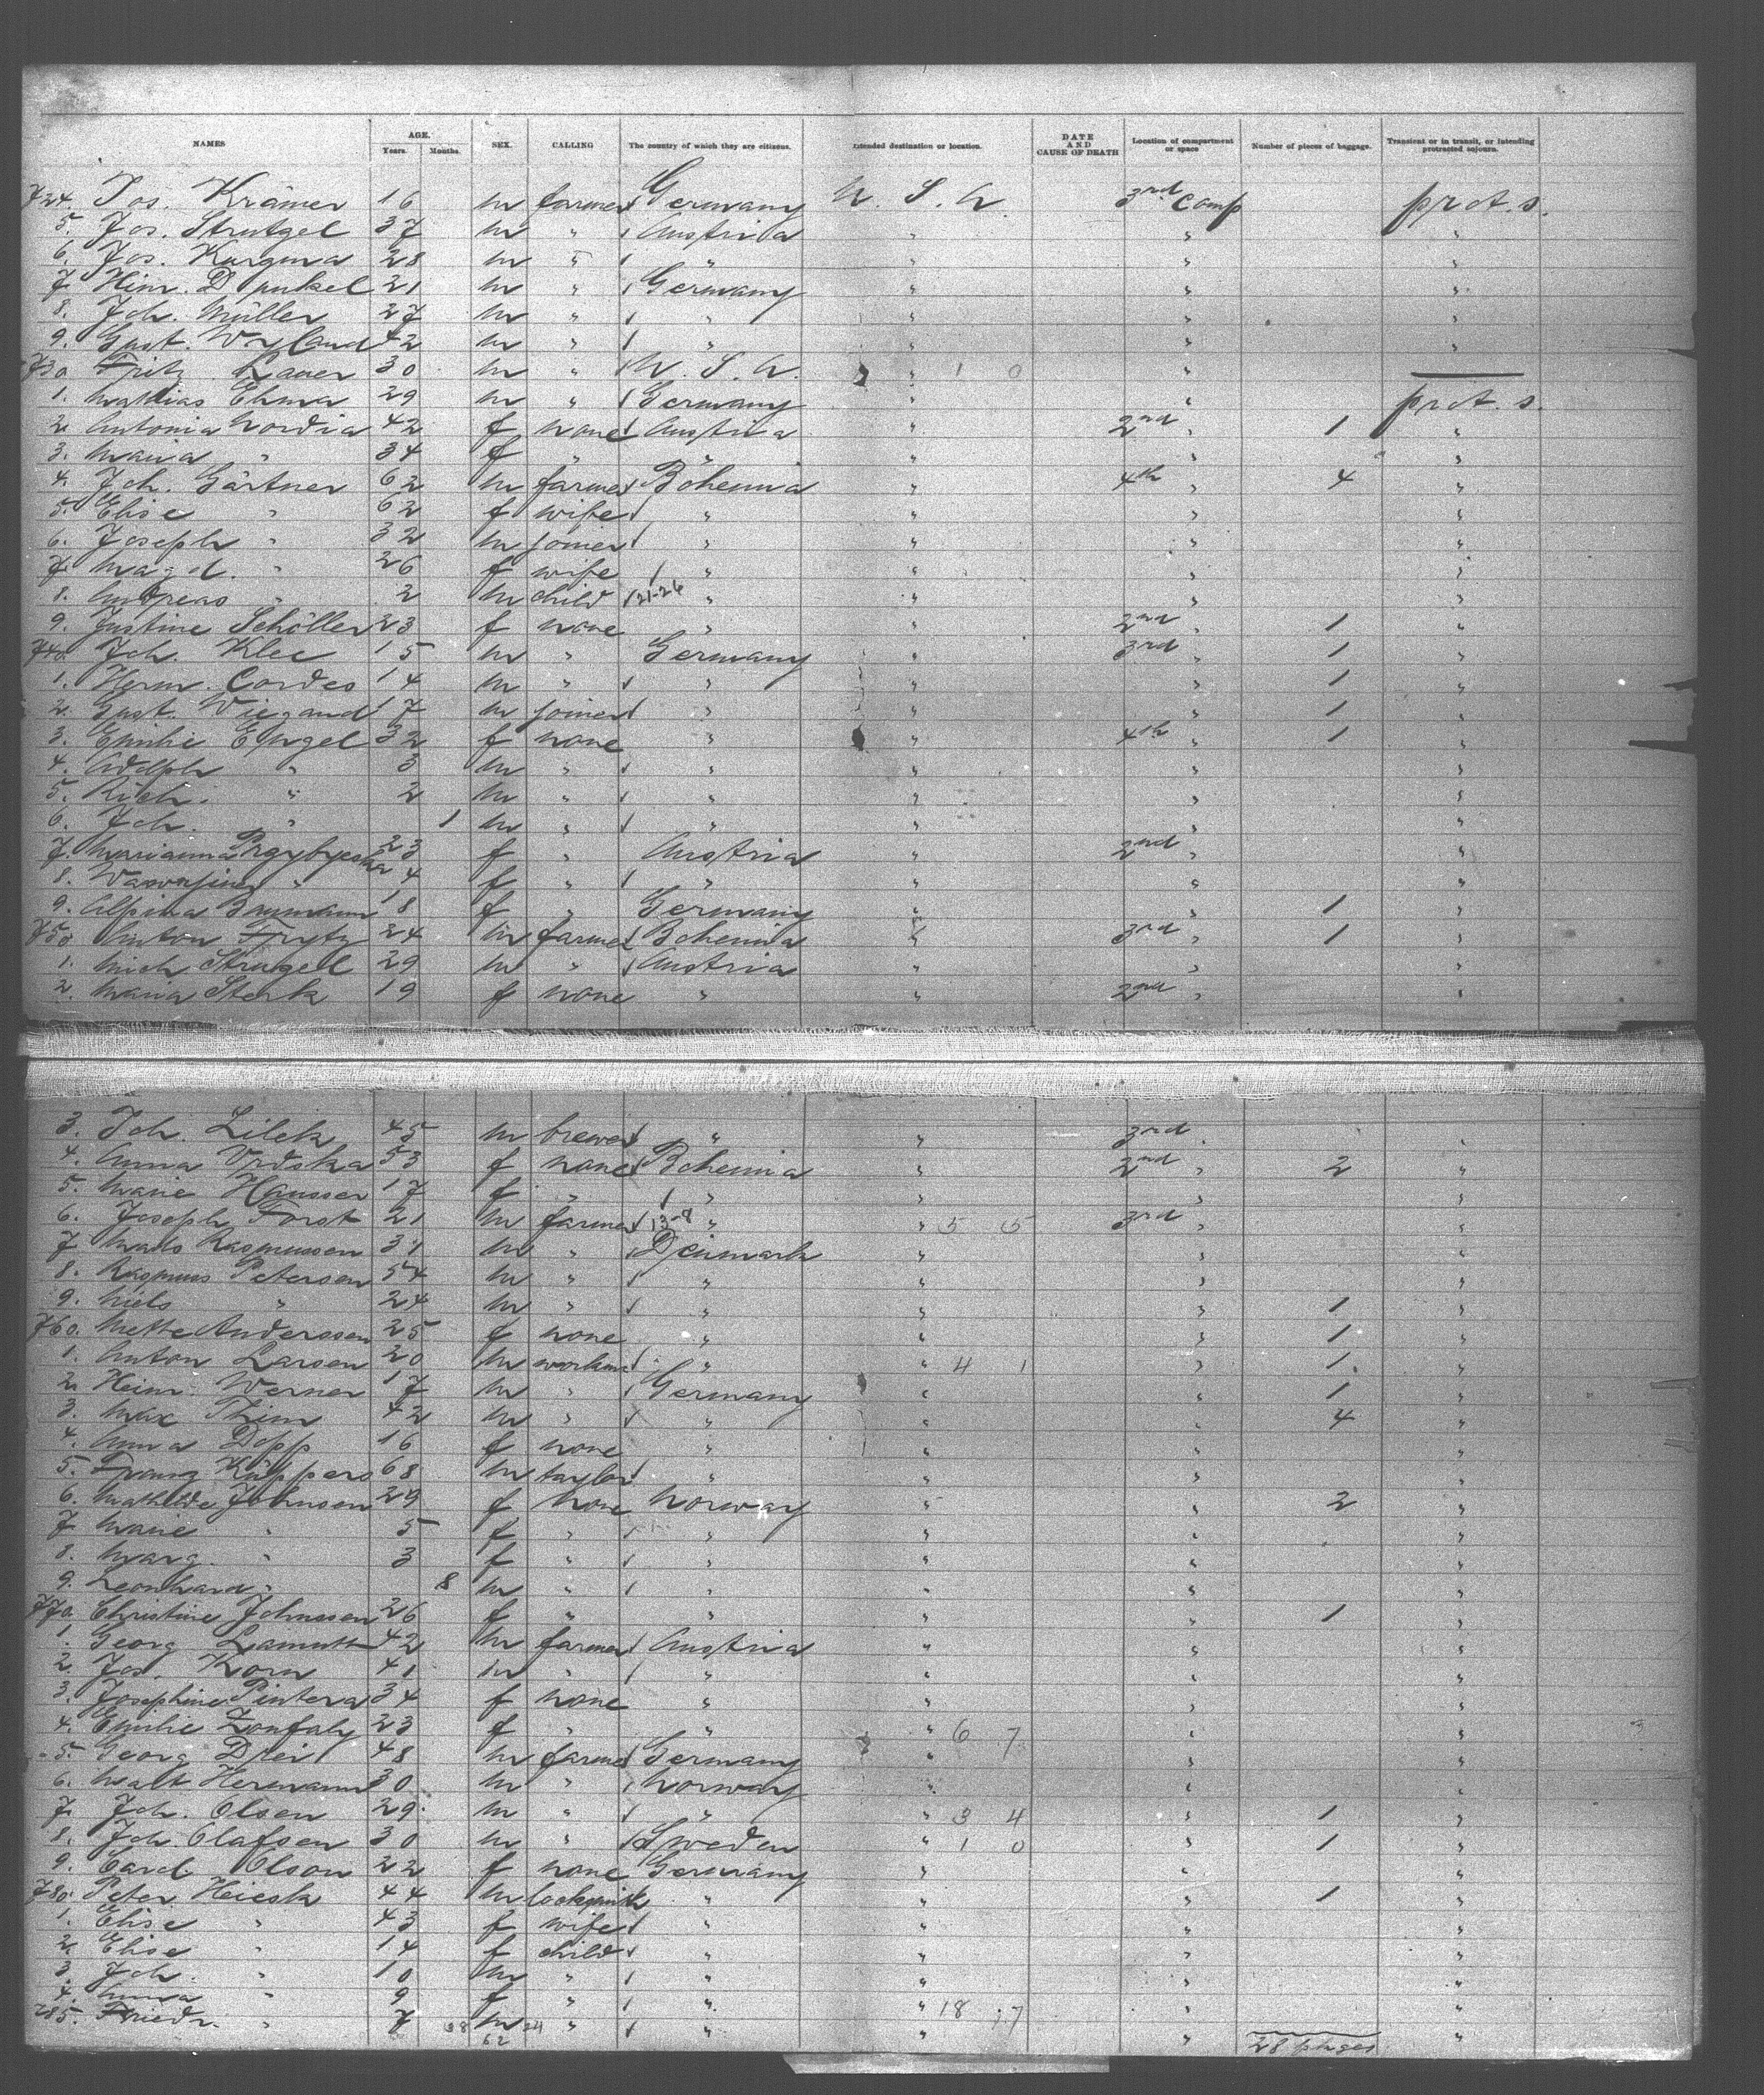 NAMES AGE. Years. Months. SEX. CALLING The country of which they are citizens. Intended destination or location. DATE AND CAUSE OF DEATH Location of compartment or space Number of pieces of baggage. Transient or in transit, or intending protracted sojourn.
724. Jos. Krämer 16 m farmer Germany U. S. A. 3rd Comp prot. s.
5. Jos. Strutzel 37 m " Austria " " "
6. Jos. 28 m " " " " "
7. Heinr. Dunkel 21 m " Germany " " "
8. Joh. Müller 27 m " " " " "
9. Gust. 42 m " " " " "
730. Fritz Lauer 30 m " U. S. A. " 1 0 "
1. Mathias Ehma 29 m " Germany " " prot. s.
2. Antonia Nordia 42 f none Austria " 2nd " 1 "
3. Maria " 34 f " " " " "
4. Joh. Gärtner 62 m farmer Bohemia " 4th " 4 "
5. Elise " 62 f wife " " " "
6. Joseph " 32 m joiner " " " "
7. Magd. " 26 f wife " " " "
8. Andreas " 2 m child 21-26 " " " "
9. Justine Schöller 23 f none " " 2nd " 1 "
740. Joh. Klee 15 m " Germany " 3rd " 1 "
1. Herm. Cordes 14 m " " " " 1 "
2. Gust. Wiegand 17 m joiner " " " 1 "
3. Emilie Engel 32 f none " " 4th " 1 "
4. Adolph " 3 m " " " " "
5. Rich. " 2 m " " " " "
6. Joh. " 1 m " " " " "
7. Marianna 23 f " Austria " 2nd " "
8. " 4 f " " " " "
9. Alpina Baumann 18 f " Germany " " 1 "
750. Anton Frytz 24 m farmer Bohemia " 3rd " 1 "
1. Mich Strugell 29 m " Austria " " "
2. Maria Sterk 19 f none " " 2nd " "
3. Joh. Lilek 45 m brewer " " 3rd "
4. Anna Vrdska 53 f none Bohemia " 2nd " 2 "
5. Marie Hausser 17 f " " " " "
6. Joseph Forst 21 m farmer 13-8 " " 5 5 3rd " "
7. Mads Rasmussen 31 m " Denmark " " "
8. Rasmus Petersen 54 m " " " " "
9. Niels " 24 m " " " " 1 "
760. Mette Anderssen 25 f none " " " 1 "
1. Anton Larsen 20 m workm " " 4 1 " 1 "
2. Heinr. Werner 17 m " Germany " " 1 "
3. Max Thim 42 m " " " " 4 "
4. Anna Dopp 16 f none " " " "
5. Franz Küppers 68 m taylor " " " "
6. Mathilde Johnsen 29 f none Norway " " 2 "
7. Marie " 5 f " " " " "
8. Marg. " 3 f " " " " "
9. Leonhard " 8 m " " " " "
770. Christine Johnssen 26 f " " " " 1 "
1. Georg Lamutt 42 m farmer Austria " " "
2. Jos. Korn 41 m " " " " "
3. Josephine Pintera 34 f none " " " "
4. Emilie 23 f " " " 6 7 " "
5. Georg Drei 48 m farmer Germany " " "
6. Malt Hermann 30 m " Norway " " "
7. Joh. Olsen 29 m " " " 3 4 " 1 "
8. Joh. Olafsen 30 m " Sweden " 1 0 " 1 "
9. Carol. Olson 22 f none Germany " " "
780. Peter Heiesk 44 m locksmith " " " 1 "
1. Elise " 43 f wife " " " "
2. Elise " 14 f child " " " "
3. Joh. " 10 m " " " " "
4. Anna " 9 f " " " 18 17 " "
785. Friedr. " 7 m " " " " "
38 62 24 28 pkges